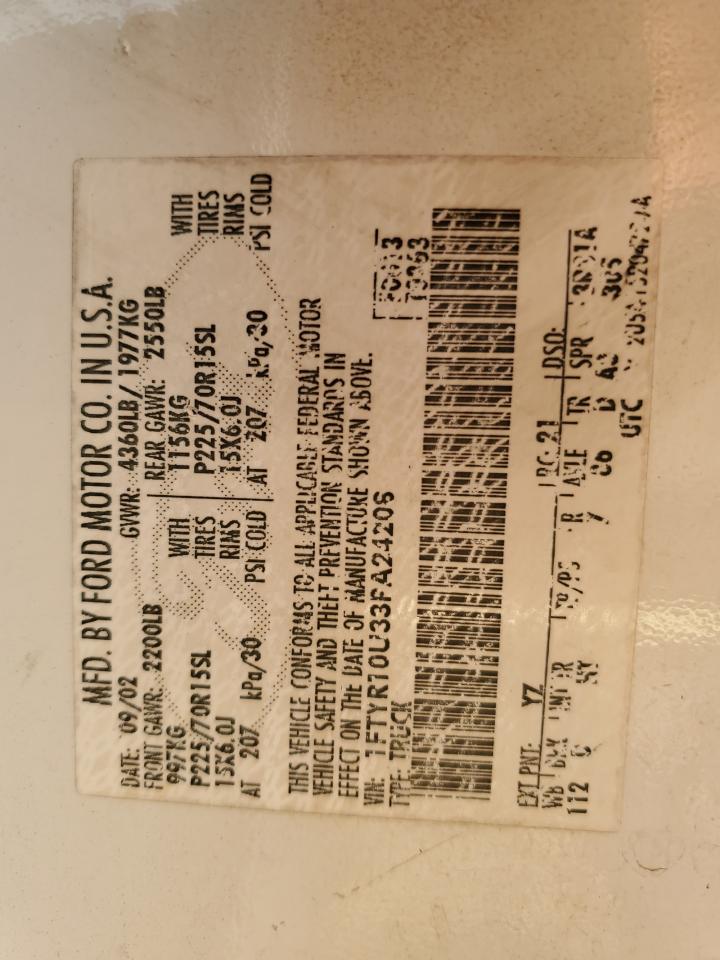 MFD. BY FORD MOTOR CO. IN U.S.A.
DATE: 09/02 GVWR: 4360LB/ 1977KG
FRONT GAWR: 2200LB REAR GAWR: 2550LB
997KG WITH 1156KG WITH
P225/70R15SL TIRES P225/70R15SL TIRES
15X6.0J RIMS 15X6.0J RIMS
AT 207 kPa/30 PSI COLD AT 207 kPa/30 PSI COLD
THIS VEHICLE CONFORMS TO ALL APPLICABLE FEDERAL MOTOR
VEHICLE SAFETY AND THEFT PREVENTION STANDARDS IN
EFFECT ON THE DATE OF MANUFACTURE SHOWN ABOVE.
VIN: 1FTYR10U33FA24206
TYPE: TRUCK
EXT PNT: YZ RC: 21 DSO:
WB TP/PS R AXLE TR SPR
112 7 D
UTC